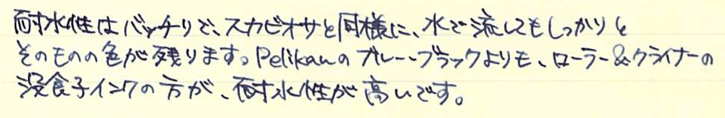 耐水性はバッチリで、スカビオサと同様に、水で流してもしっかりと
そのものの色が残ります。Pelikanのブルーブラックよりも、ローラー&クライナーの
没食子インクの方が、耐水性が高いです。